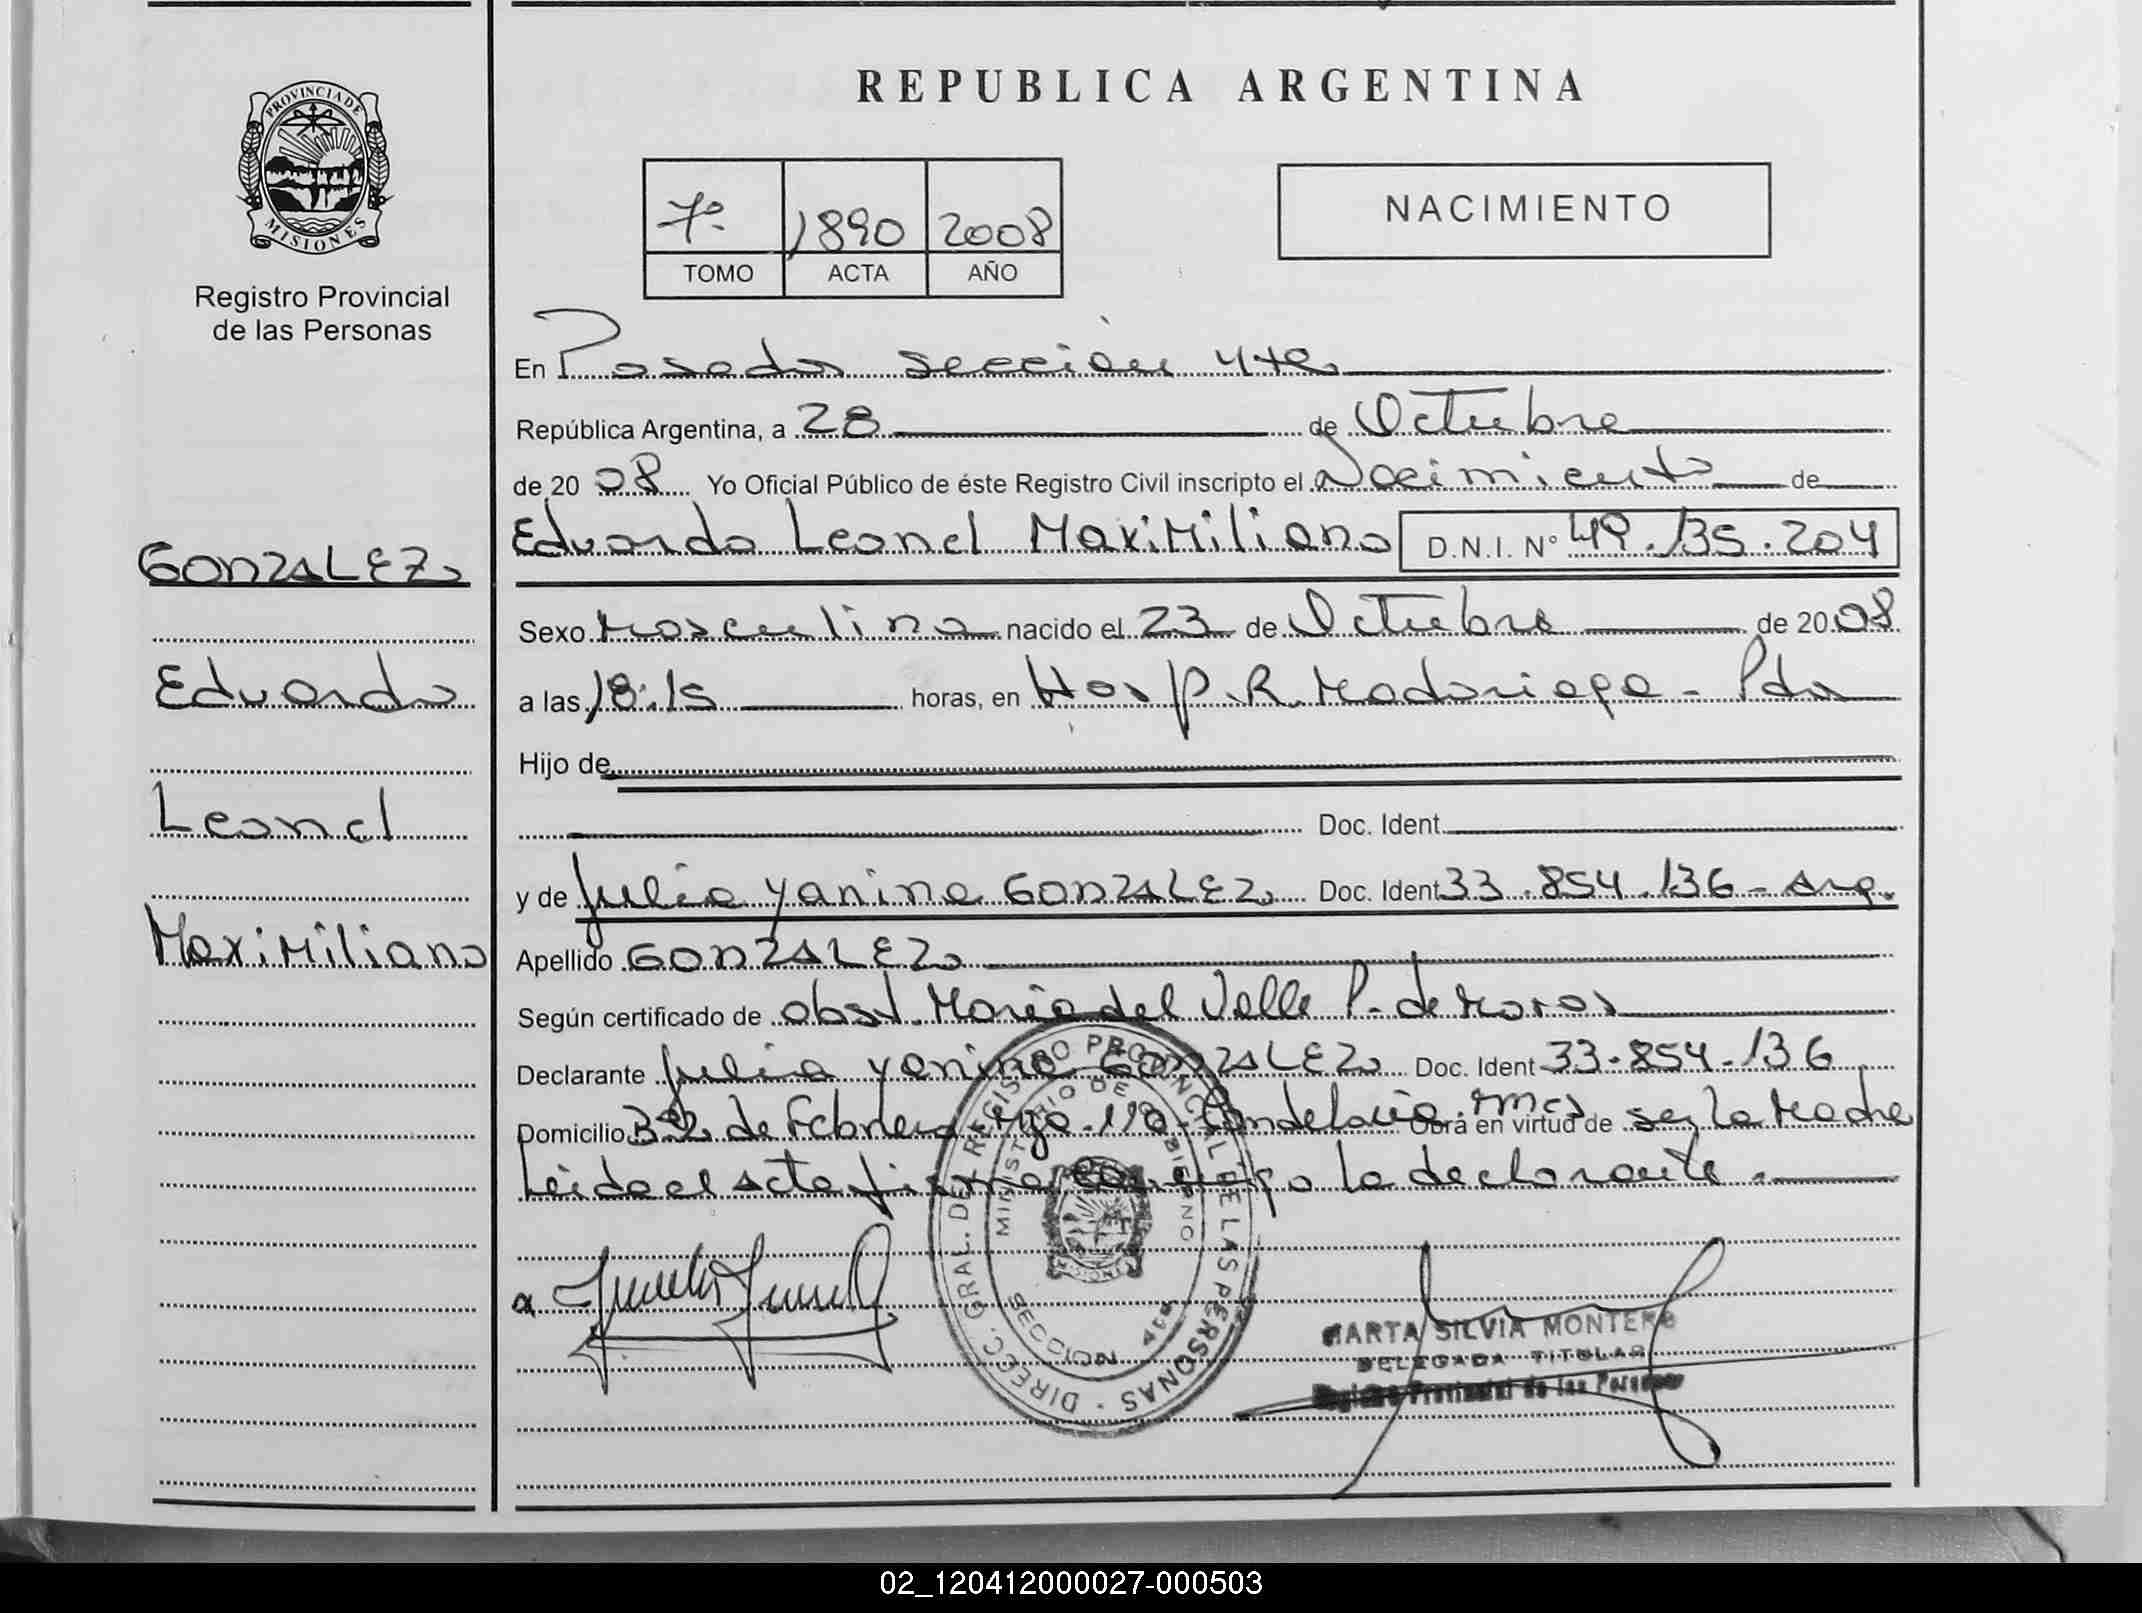 REPUBLICA ARGENTINA
PROVINCIA DE MISIONES
Registro Provincial
de las Personas
7º 1890 2008
TOMO ACTA AÑO
NACIMIENTO
En Posadas sección 4ta
República Argentina, a 28 de Octubre
de 20 08 Yo Oficial Público de éste Registro Civil inscripto el Nacimiento de
Eduardo Leonel Maximiliano D.N.I. Nº 49.135.204
GONZALEZ
Sexo Masculino nacido el 23 de Octubre de 2008
Eduardo
a las 18:15 horas, en Hosp. R. Madariaga - Pdas
Hijo de
Leonel
Doc. Ident.
y de Julia Yanina GONZALEZ Doc. Ident 33.854.136 - Arg.
Maximiliano
Apellido GONZALEZ
Según certificado de obst. María del Valle P. de
Declarante Julia Yanina GONZALEZ Doc. Ident 33-854-136
Domicilio de Febrero 110 - Candelaria. Mnes Obra en virtud de ser la Madre
Leída el acta firma la declarante.
DIREC. GRAL. DEL REGISTRO PROVINCIAL DE LAS PERSONAS
MINISTERIO DE GOBIERNO
SECCION 4ta
MISIONES
MARTA SILVIA MONTERO
DELEGADA TITULAR
Registro Provincial de las Personas
02_120412000027-000503